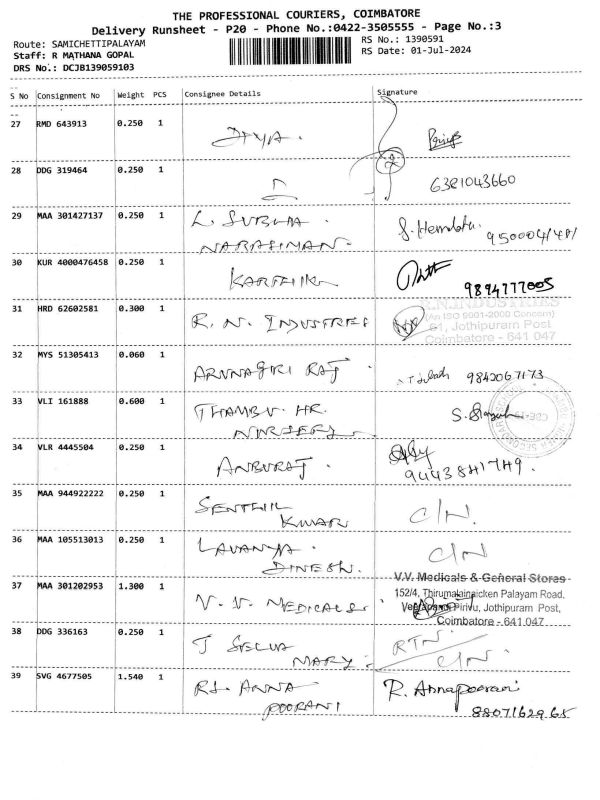 THE PROFESSIONAL COURIERS, COIMBATORE
Delivery Runsheet - P20 - Phone No.:0422-3505555 - Page No.:3
Route: SAMICHETTIPALAYAM
RS No.: 1390591
Staff: R MATHANA GOPAL
RS Date: 01-Jul-2024
DRS No.: DCJB139059103
S No Consignment No Weight PCS Consignee Details Signature
27 RMD 643913 0.250 1 DIYA.
28 DDG 319464 0.250 1 6381043660
29 MAA 301427137 0.250 1 L. SUBHA. S. Hemlatha.
NARASIMAN. 950004/481
30 KUR 4000476458 0.250 1 KARTHIK
9894777005
31 HRD 62602581 0.300 1 R. N. INDUSTRIES
R.N.INDUSTRIES
(An ISO 9001-2000 Concern)
61, Jothipuram Post
Coimbatore - 641 047
32 MYS 51305413 0.060 1 ARUNAGIRI RAJ 9842067173
33 VLI 161888 0.600 1 THAMBU. HR. S.
34 VLR 4445504 0.250 1 ANBURAJ.
9443841749.
35 MAA 944922222 0.250 1 SENTHIL
KUMAR C/N.
36 MAA 105513013 0.250 1 LAVANYA.
DINESH. C/N
37 MAA 301202953 1.300 1 V. V. MEDICALS.
V.V. Medicals & General Stores
152/4, Thirumalainaicken Palayam Road,
Pirivu, Jothipuram Post,
Coimbatore - 641 047
38 DDG 336163 0.250 1 J SELVA RTN.
MARY. C/N.
39 SVG 4677505 1.540 1 RJ. ANNA R. Annapoorani
POORANI 8807162965